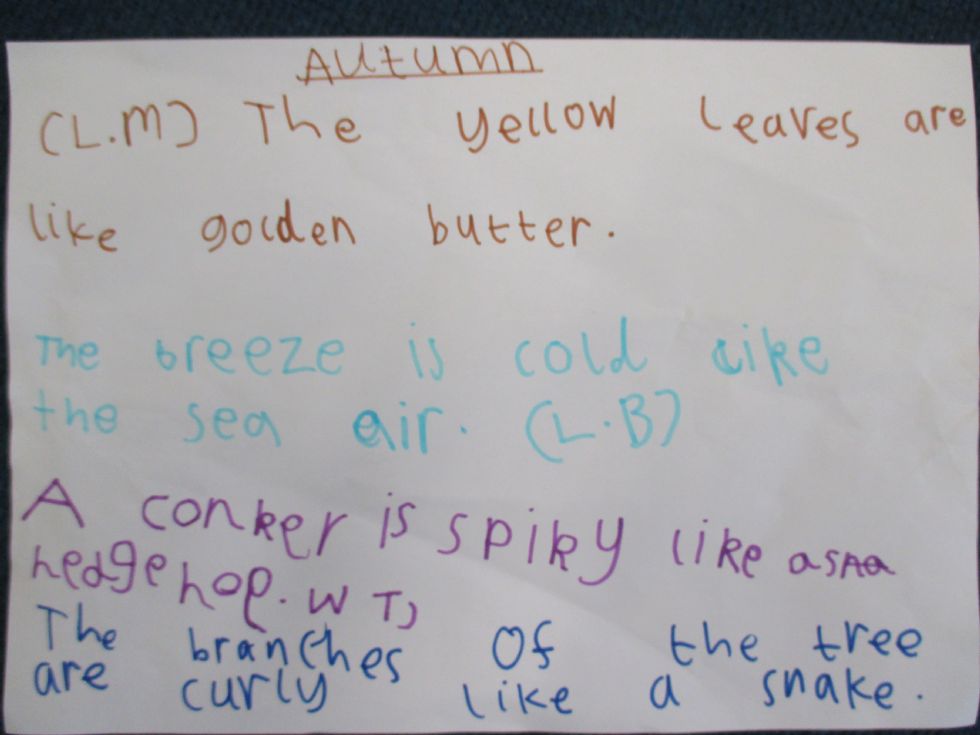 Autumn
(L.M) The yellow leaves are
like golden butter.
The breeze is cold like
the sea air. (L.B)
A conker is spiky like a
hedgehop. W TJ
The branches of the tree
are curly like a snake.